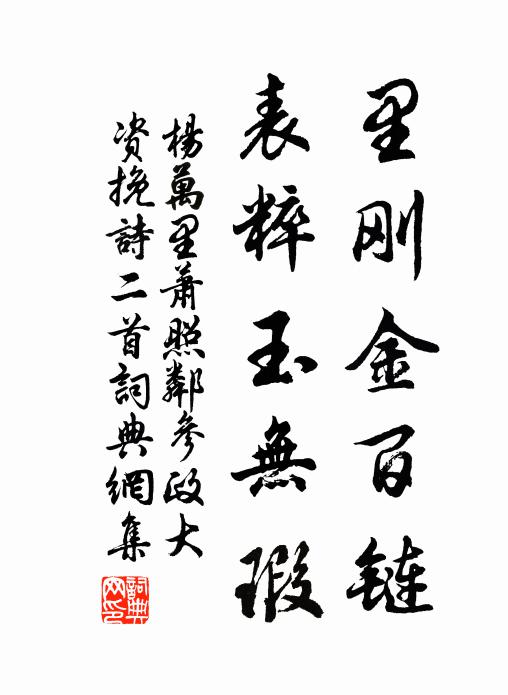 里刚金百鏈
表粹玉無瑕
楊萬里蕭照鄰參政大
资挽詩二首詞典網集
詞典網印